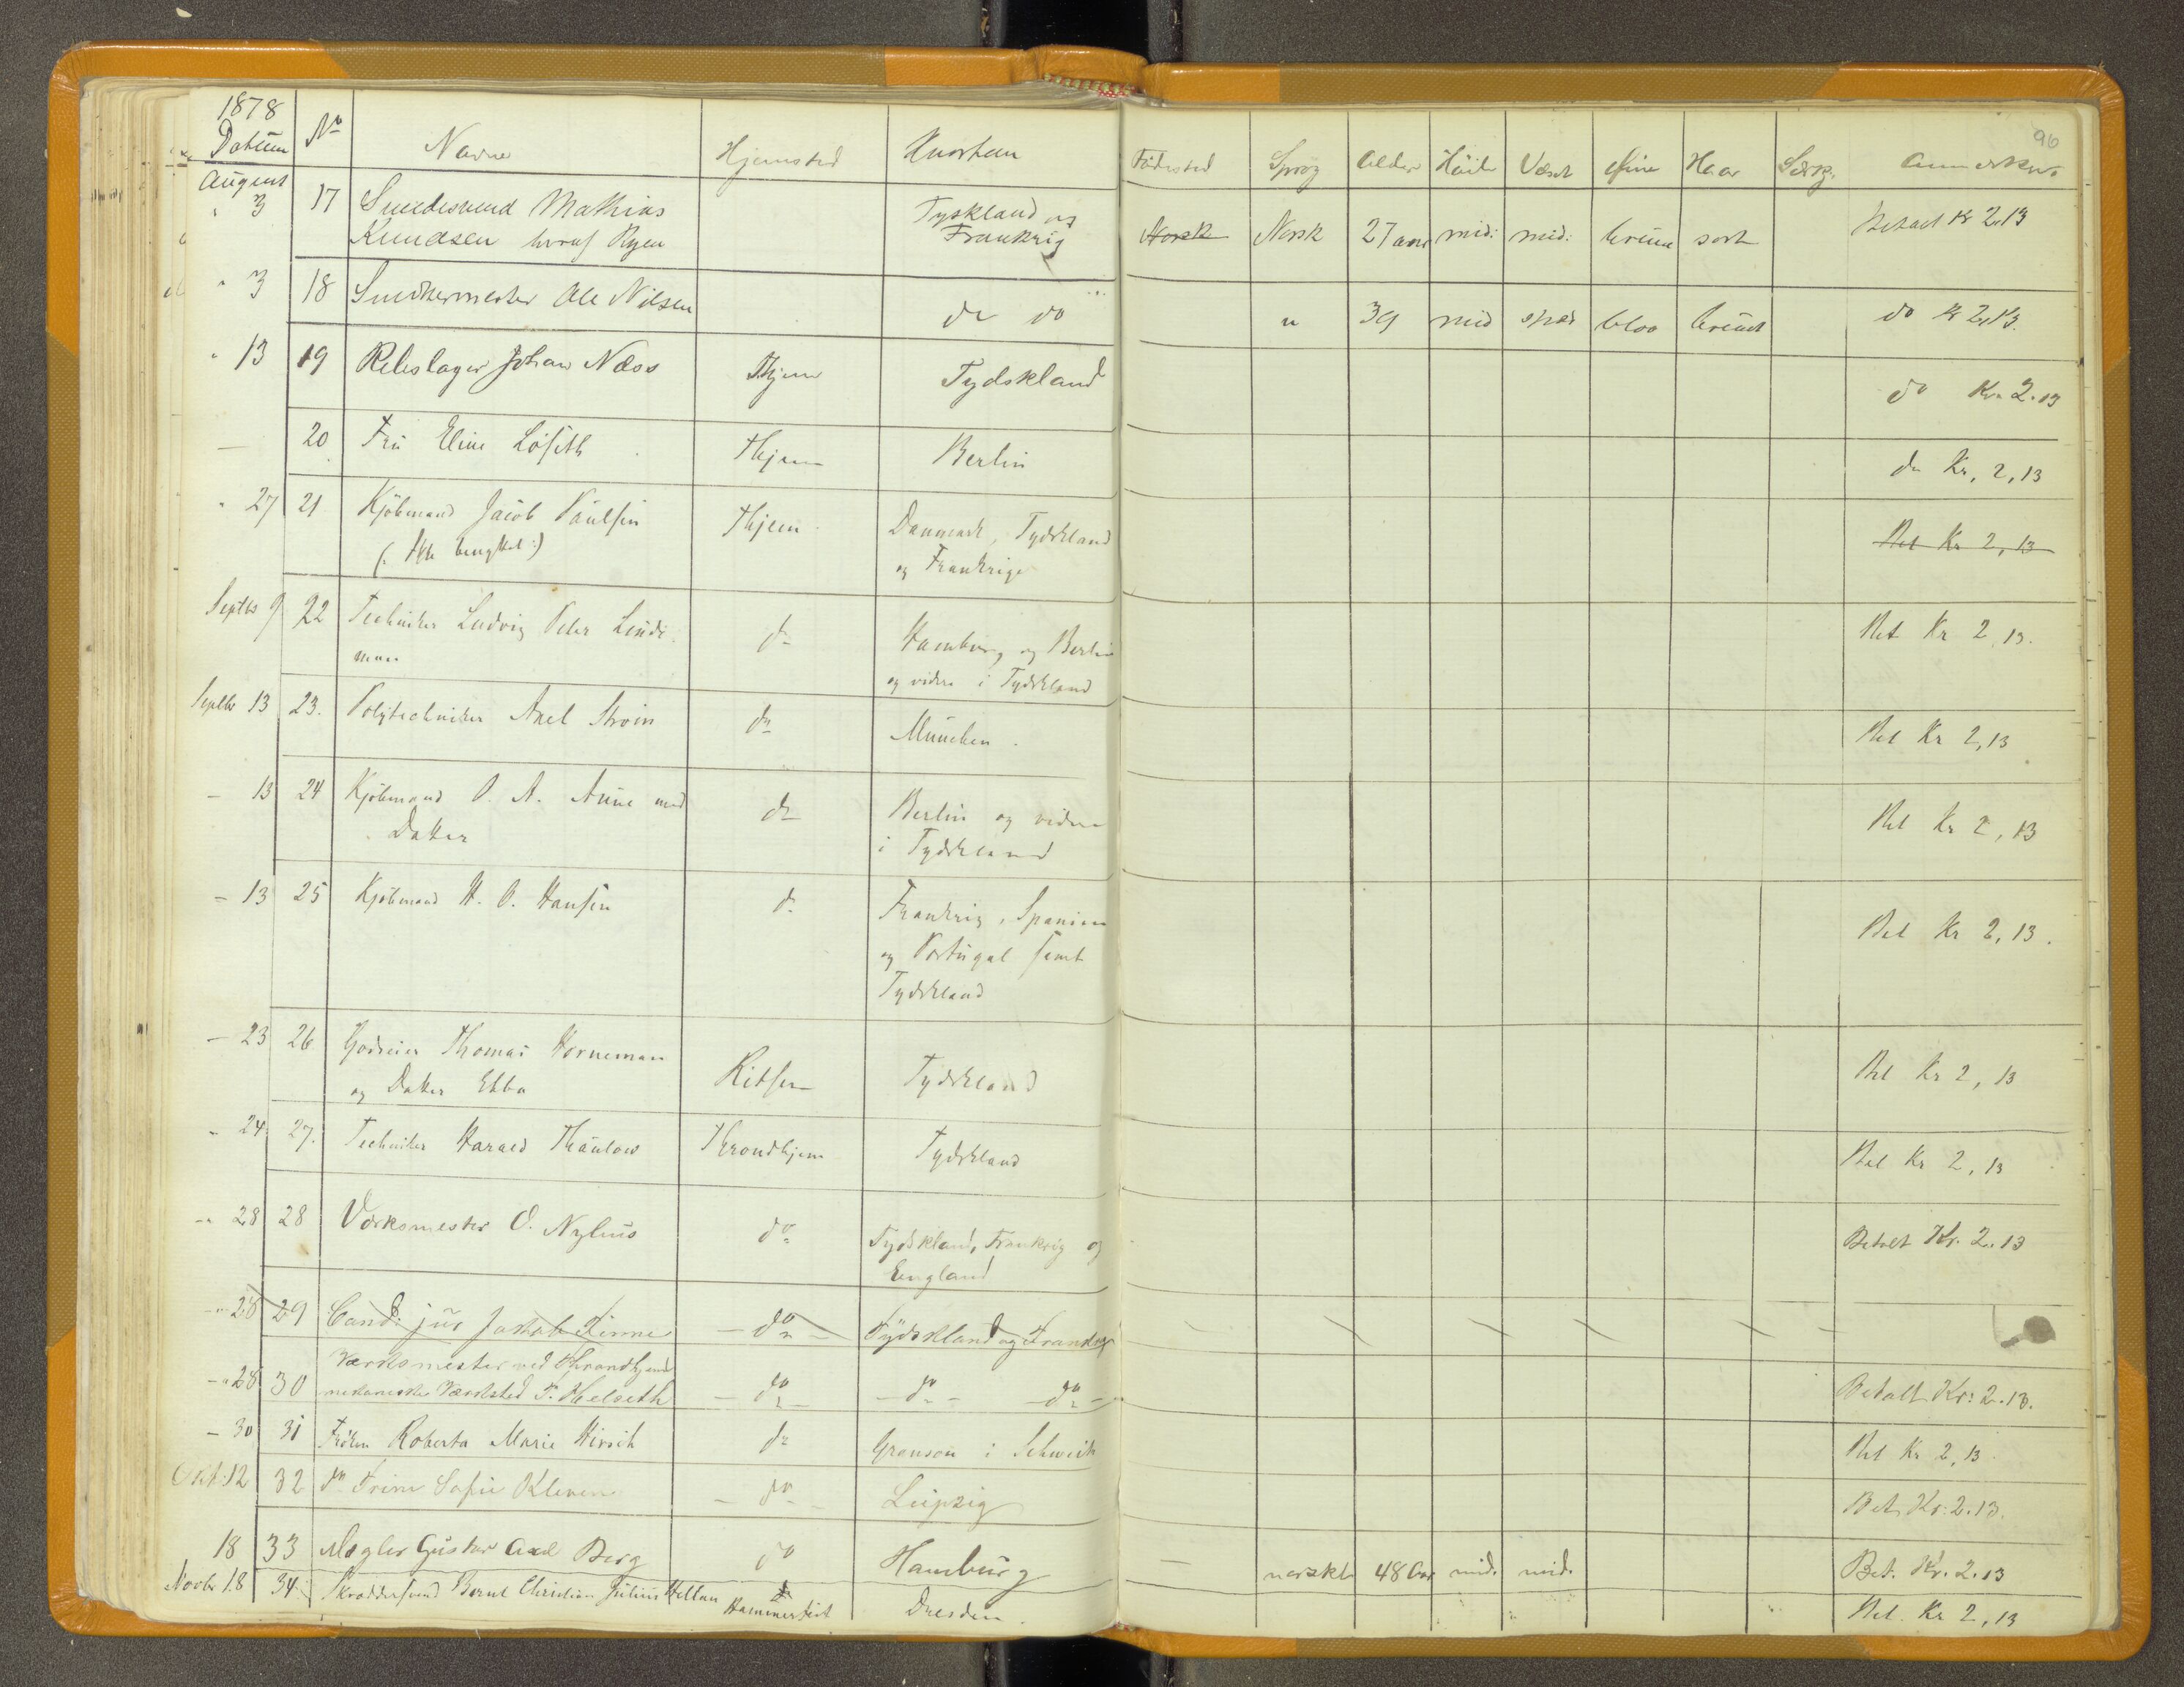 1878
96
Datum No Navne Hjemsted Hvorhen Födested Sprog Alder Höide Væxt Öine Haar Særk. Anmerkn.
August
" 3 17 Smedesvend Mathias Tyskland og Norsk Norsk 27 aar mid: mid: brune sort Betalt Kr 2.13
Knudsen Ryen Frankrig
" 3 18 Snedkermester Ole Nilsen do do " 39 mid spæd blaa brunt do Kr 2,13.
" 13 19 Rebslager Johan Næss Thjem Tydskland do Kr. 2.13
— 20 Fru Eline Löseth Thjem Berlin do Kr. 2,13
" 27 21 Kjöbmand Jacob Paulsen Thjem Danmark, Tydskland Bet Kr 2,13
(: Ikke benyttet :) og Frankrige
Septbr 9 22 Techniker Ludvig Peter Linde- do Hamburg og Berlin Bet Kr 2,13.
man og videre i Tydskland
Septbr 13 23. Polytechniker Axel do München. Bet Kr 2,13
— 13 24 Kjöbmand P. A. Aune med do Berlin og videre Bet Kr 2,13
Datter i Tydskland
— 13 25 Kjöbmand H. P. Hansen do Frankrig, Spanien Bet Kr 2,13.
og Portugal samt
Tydskland
— 23 26 Godseier Thomas Horneman Ritsem Tydskland Bet Kr 2,13
og Datter Ebba
" 24 27. Techniker Harald Thaulow Throndhjem Tydskland Bet Kr 2,13
—" 28 28 Værksmester O. Nyhus do Tydskland, Frankrig og Betalt Kr. 2.13
England
—" 28 29 Cand: jur Jakob Finne — do — Tydskland og Frankrig
Værksmester ved Throndhjems
—" 28 30 mekaniske Værksted P. Helseth — do — — do — — do — Betalt Kr: 2.13.
— 30 31 Fröken Roberta Marie Hirsch do Granson i Schweitz Bet Kr 2,13
Okt: 12 32 do Trine Sofie Kleven — do — Leipzig Bet. Kr. 2.13.
18 33 Mægler Gustav Axel Berg do Hamburg — norskt 48 Aar mid. mid. Bet. Kr. 2.13
Novbr 18 34. Skræddersvend Bernt Christian Julius Hellan Hammerfest Dresden. Bet. Kr 2,13